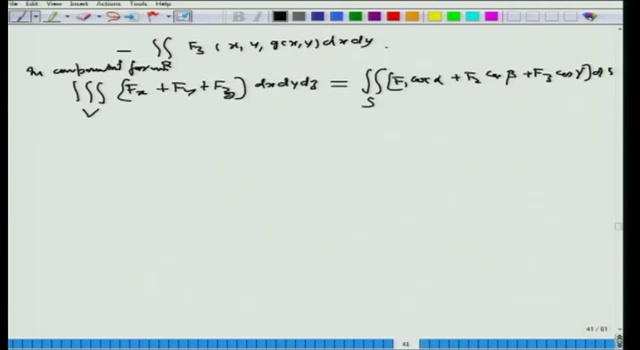 File Edit View Insert Actions Tools Help
− ∬_R F₃ (x, y, g(x, y)) dx dy.
In component form
∭_V [F_x + F_y + F_z] dx dy dz = ∬_S [F₁ cos α + F₂ cos β + F₃ cos γ] ds
41 / 61
41